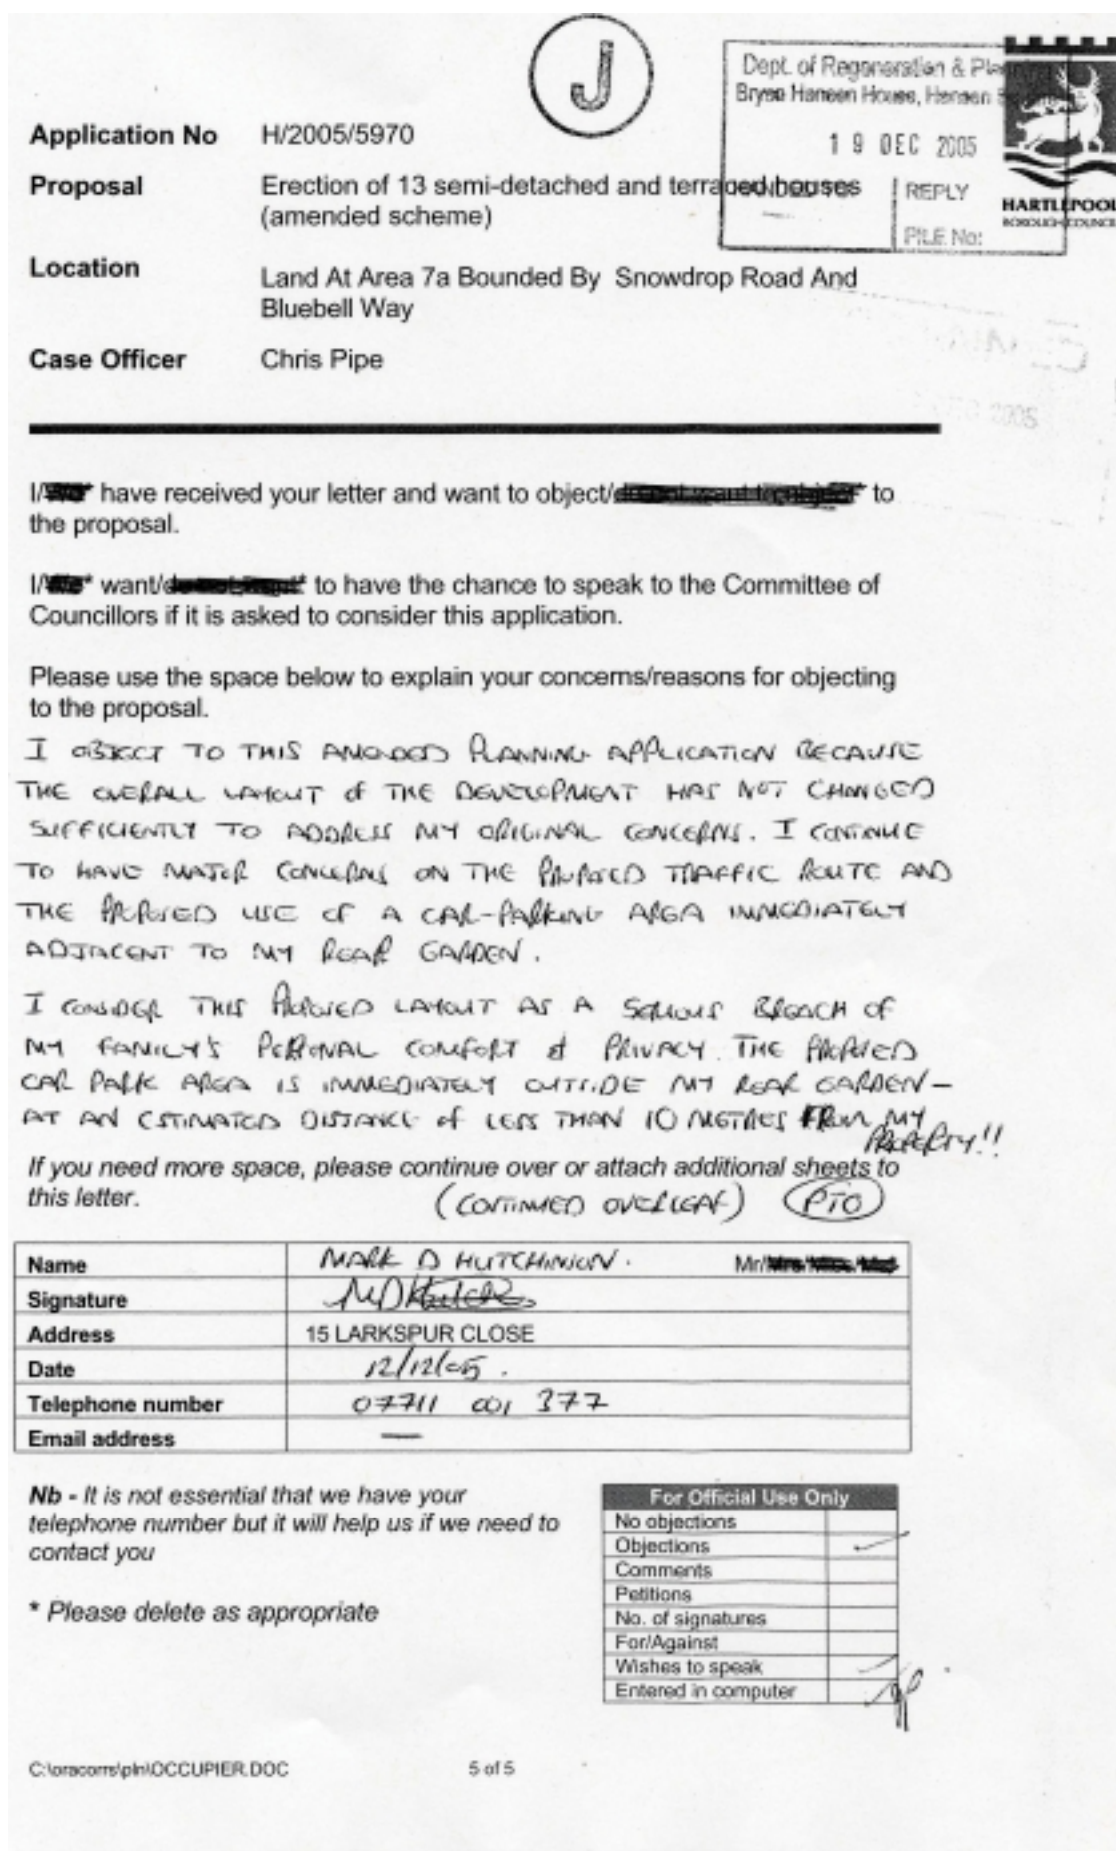 J
Dept. of Regeneration & Planning
Bryan Hanson House, Hanson
19 DEC 2005
REPLY
FILE No:
HARTLEPOOL
BOROUGH COUNCIL
Application No H/2005/5970
Proposal Erection of 13 semi-detached and terraced houses
(amended scheme)
Location Land At Area 7a Bounded By Snowdrop Road And
Bluebell Way
Case Officer Chris Pipe
2005
I/We* have received your letter and want to object/do not want to object* to
the proposal.
I/We* want/do not want* to have the chance to speak to the Committee of
Councillors if it is asked to consider this application.
Please use the space below to explain your concerns/reasons for objecting
to the proposal.
I OBJECT TO THIS AMENDED PLANNING APPLICATION BECAUSE
THE OVERALL LAYOUT of THE DEVELOPMENT HAS NOT CHANGED
SUFFICIENTLY TO ADDRESS MY ORIGINAL CONCERNS. I CONTINUE
TO HAVE MAJOR CONCERNS ON THE PROPOSED TRAFFIC ROUTE AND
THE PROPOSED USE OF A CAR-PARKING AREA IMMEDIATELY
ADJACENT TO MY REAR GARDEN.
I CONSIDER THIS PROPOSED LAYOUT AS A SERIOUS BREACH OF
MY FAMILY'S PERSONAL COMFORT & PRIVACY. THE PROPOSED
CAR PARK AREA IS IMMEDIATELY OUTSIDE MY REAR GARDEN -
AT AN ESTIMATED DISTANCE of LESS THAN 10 METRES FROM MY
PROPERTY!!
If you need more space, please continue over or attach additional sheets to
this letter. (CONTINUED OVERLEAF) PTO
Name MARK D HUTCHINSON. Mr/Mrs/Miss/Ms*
Signature
Address 15 LARKSPUR CLOSE
Date 12/12/05.
Telephone number 07711 001 377
Email address —
Nb - It is not essential that we have your
telephone number but it will help us if we need to
contact you
* Please delete as appropriate
For Official Use Only
No objections
Objections ✓
Comments
Petitions
No. of signatures
For/Against
Wishes to speak
Entered in computer
C:\oracorrs\pln\OCCUPIER.DOC 5 of 5